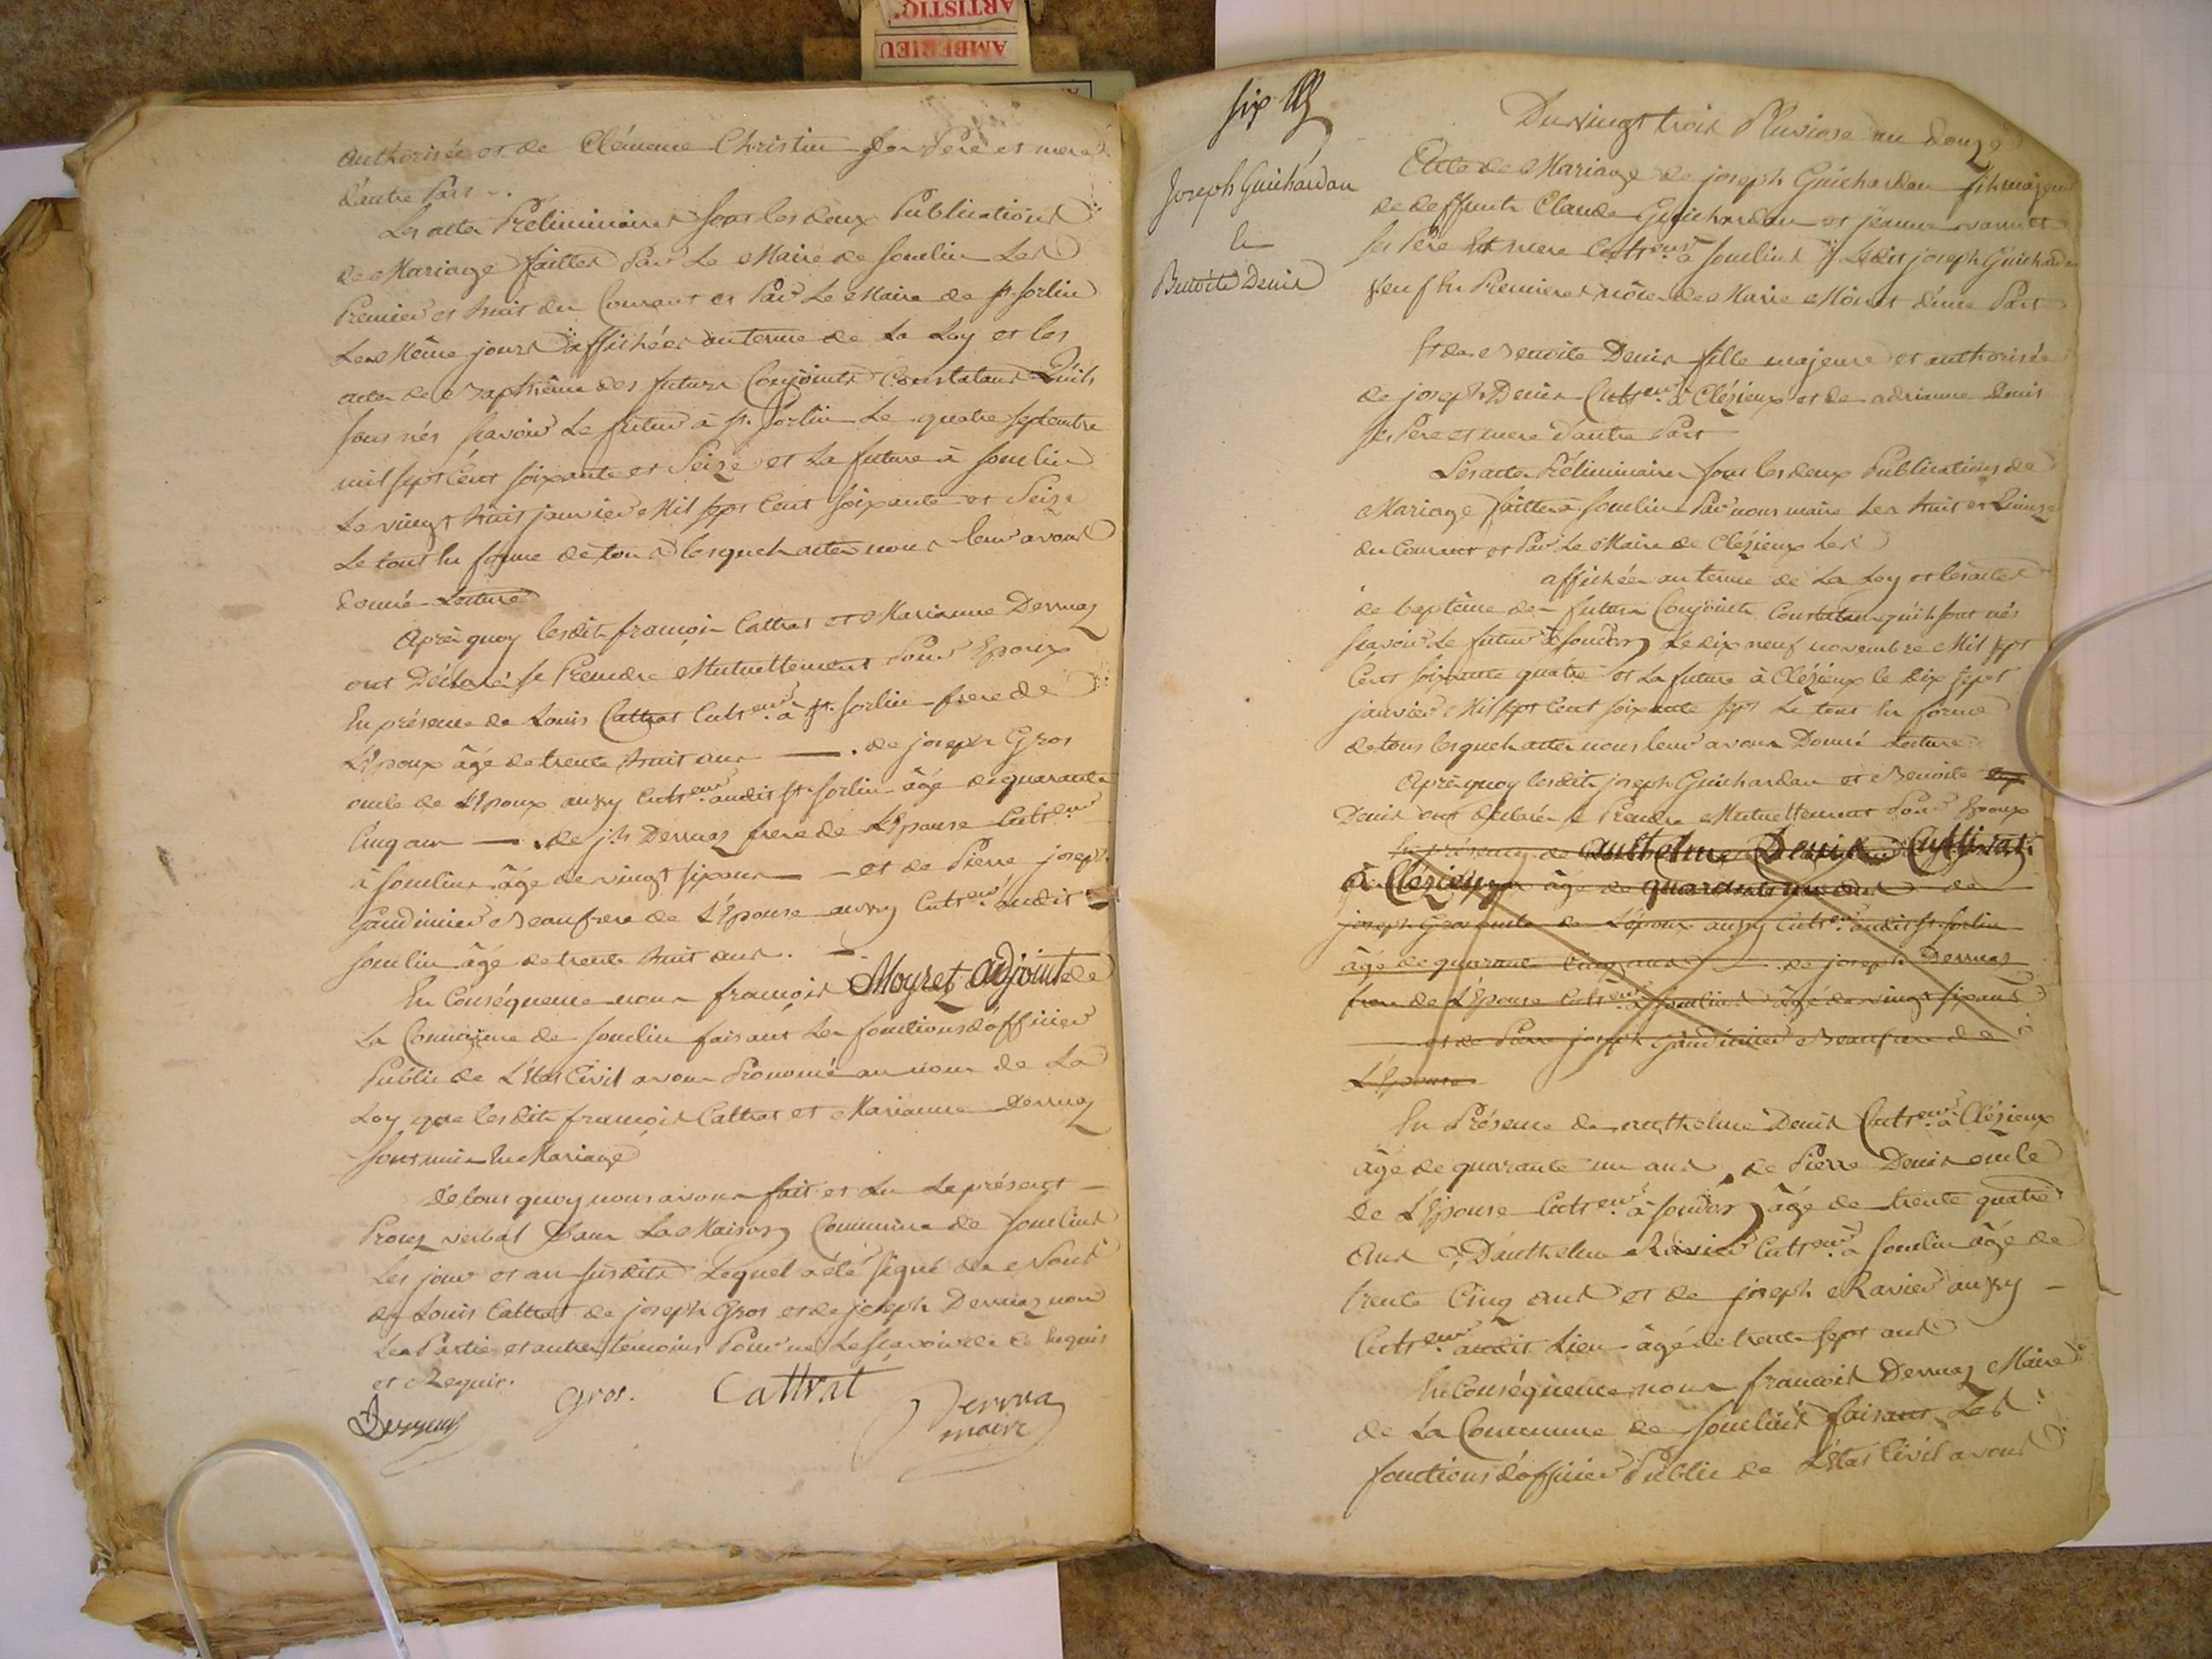 ARTISTIQ.
AMBERIEU
authorisée et de Clémence Christin ses Pere et mere
d'autre Part.
Les actes Préliminaires sont les deux Publications
de Mariage faittes Par Le Maire de Souclin Les
Premier et huit du Courant et Par Le Maire de St. Sorlin
Les Même jours affichées au terme de La Loy et les
actes de Bapthême des futurs Conjoints Constatant Quils
sont nés scavoir Le futur à St. Sorlin Le quatre septembre
mil sept Cent soixante et Seize et La future à Souclin
Le vingt huit janvier Mil sept Cent soixante et Seize
Le tout En forme de tous lesquels actes nous leur avons
donné Lecture
Après quoy lesdits françois Cattrat et Marianne Dermaz
ont Déclaré se Prendre Mutuellement Pour Epoux
En présence de Louis Cattrat Cultr. à St. Sorlin frere de
L'Epoux âgé de trente huit ans — . de joseph Gros
oncle de L'Epoux aussy Cultr. audit St. Sorlin âgé de quarante
Cinq ans — . de jh. Dermaz frere de L'Epouse Cultr.
à Souclin âgé de vingt six ans — et de Pierre joseph
Gaudinier Beaufrere de L'Epouse aussy Cultr. audit
Souclin âgé de trente huit ans. —
En Conséquence nous françois Moyret adjoint de
La Commune de Souclin faisant Les fonctions d'officier
Public de L'Etat Civil avons Prononcé au nom de La
Loy que lesdits françois Cattrat et Marianne Dermaz
sont unis En Mariage
de tout quoy nous avons fait et Lu Le présent —
Procez verbal Dans La Maison Commune de Souclin
Les jour et an susdits Lequel a été signé de Nous
de Louis Cattrat de joseph Gros et de joseph Dermaz non
Les Parties et autres témoins Pour ne Le scavoir de ce Enquis
et Requis.
Gros. Cattrat
Dermaz
maire
six
Joseph Guichardan
&
Benoite Denis
Du vingt trois Pluviose an douze
Acte de Mariage de joseph Guichardan fils majeur
de deffunts Claude Guichardan et jeanne
ses Pere Et mere Cultr. à Souclin Ledit joseph Guichardan
veuf En Premieres nôces de Marie d'une Part
Et de Benoite Denis fille majeure et authorisée
de joseph Denis Cultr. à Clézieux et de adrianne Denis
ses Pere et mere d'autre Part
Les actes Préliminaires sont les deux Publications de
Mariage faittes à Souclin Par nous maire Les huit et Quinze
du Courant et Par Le Maire de Clézieux Les
affichées au terme de La Loy et les actes
de baptême des futurs Conjoints Constatans quils sont nés
scavoir Le futur à Soudon Le dix neuf novembre Mil sept
Cent soixante quatre et La future à Clézieux le Dix sept
janvier Mil sept Cent soixante sept Le tout En forme
de tous lesquels actes nous leur avons Donné Lecture
Après quoy lesdits joseph Guichardan et Benoite
Denis ont déclarés se Prendre Mutuellement Pour Epoux
En présence de Anthelme Denis Cultivat.
à Clézieux âgé de quarante un ans de
joseph Gros oncle de L'époux aussy Cultr. audit St. Sorlin
âgé de quarante Cinq ans de joseph Dermaz
frere de L'Epouse Cultr. à Souclin âgé de vingt six ans
et de Pierre joseph Gaudinier Beaufrere de
L'Epouse
En Présence de anthelme Denis Cultr. à Clézieux
âgé de quarante un ans, de Pierre Denis oncle
de L'Epouse Cultr. à Soudon âgé de trente quatre
ans, D'anthelme Ravier Cultr. à Souclin âgé de
trente Cinq ans et de joseph Ravier aussy —
Cultr. audit Lieu âgé de trente sept ans
En Conséquence nous françois Dermaz Maire
de La Commune de Souclin faisant Les
fonctions d'officier Public de L'état Civil avons